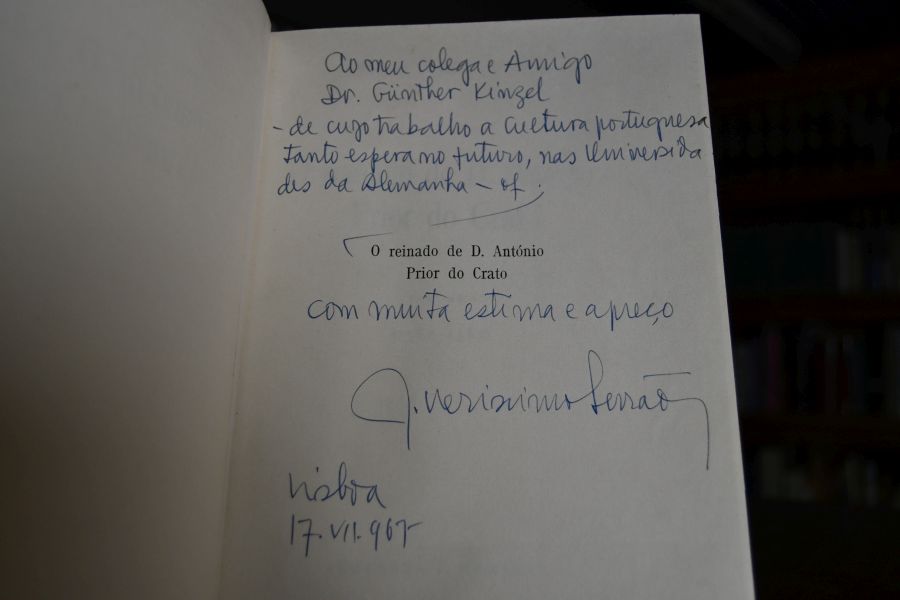 Ao meu colega e Amigo
Dr. Günther Kinzel
- de cujo trabalho a Cultura portuguesa
tanto espera no futuro, nas Universida
des da Alemanha - of.
O reinado de D. António
Prior do Crato
com muita estima e apreço
J. Veríssimo Serrão
Lisboa
17.VII.967